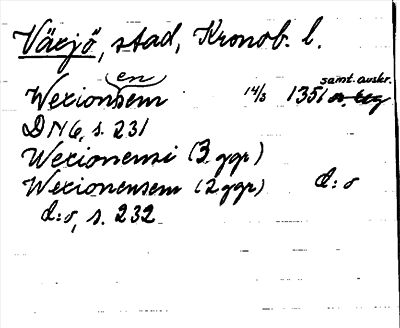 Växjö, stad, Kronob. l.
Wexionensem 14/8 1351 samt. avskr.
DN 6, s. 231
Wexionensi (3 ggr)
Wexionensem (2 ggr) d:o
d:o, s. 232